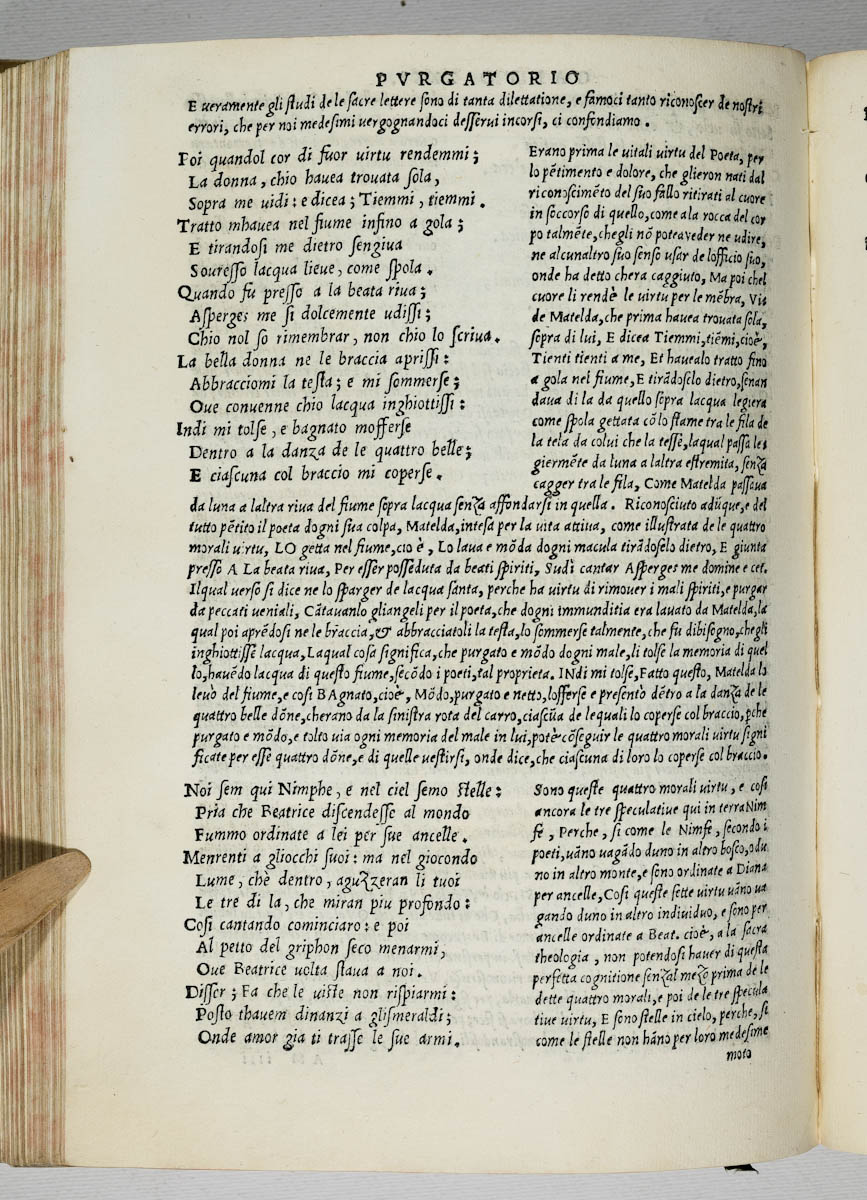 PVRGATORIO
E ueramente gli studi de le sacre lettere sono di tanta dilettatione, e famoci tanto riconoscer de nostri
errori, che per noi medesimi uergognandoci desserui incorsi, ci confondiamo.
Poi quandol cor di fuor uirtu rendemmi;
La donna, chio hauea trouata sola,
Sopra me uidi: e dicea; Tiemmi, tiemmi.
Tratto mhauea nel fiume infino a gola;
E tirandosi me dietro sengiua
Souresso lacqua lieue, come spola.
Quando fu presso a la beata riua;
Asperges me si dolcemente udissi;
Chio nol so rimembrar, non chio lo scriua.
La bella donna ne le braccia aprissi:
Abbracciomi la testa; e mi sommerse;
Oue conuenne chio lacqua inghiottissi:
Indi mi tolse, e bagnato mofferse
Dentro a la danza de le quattro belle;
E ciascuna col braccio mi coperse.
Erano prima le uitali uirtu del Poeta, per
lo pētimento e dolore, che glieron nati dal
riconoscimēto del suo fallo ritirati al cuore
in soccorso di quello, come a la rocca del cor
po talmēte, chegli nō potea veder ne udire,
ne alcunaltro suo senso usar de lofficio suo,
onde ha detto chera caggiuto, Ma poi chel
cuore li rendè le uirtu per le mēbra, Vi=
de Matelda, che prima hauea trouata sola,
sopra di lui, E dicea Tiemmi, tiēmi, cioè,
Tienti tienti a me, Et hauealo tratto fino
a gola nel fiume, E tirādoselo dietro, senan
daua di la da quello sopra lacqua legiera
come spola gettata cō lo stame tra le fila de
la tela da colui che la tesse, laqual passa le=
giermēte da luna a laltra estremita, senza
cagger tra le fila, Come Matelda passaua
da luna a laltra riua del fiume sopra lacqua senza affondarsi in quella. Riconosciuto adūque, e del
tutto pētito il poeta dogni sua colpa, Matelda, intesa per la uita attiua, come illustrata de le quattro
morali uirtu, LO getta nel fiume, cio è, Lo laua e mōda dogni macula tirādoselo dietro, E giunta
presso A La beata riua, Per esser posseduta da beati spiriti, Sudi cantar Asperges me domine e cet.
Ilqual uerso si dice ne lo sparger de lacqua santa, perche ha uirtu di rimouer i mali spiriti, e purgar
da peccati ueniali, Cātauanlo gliangeli per il poeta, che dogni immunditia era lauato da Matelda, la
qual poi aprēdosi ne le braccia, & abbracciatoli la testa, lo sommerse talmente, che fu dibisogno, chegli
inghiottisse lacqua, Laqual cosa significa, che purgato e mōdo dogni male, li tolse la memoria di quel
lo, hauēdo lacqua di questo fiume, secōdo i poeti, tal proprieta. INdi mi tolse, Fatto questo, Matelda lo
leuò del fiume, e cosi BAgnato, cioè, Mōdo, purgato e netto, lofferse e presentò dētro a la danza de le
quattro belle dōne, cherano da la sinistra rota del carro, ciascūa de lequali lo coperse col braccio, pche
purgato e mōdo, e tolto uia ogni memoria del male in lui, potè cōseguir le quattro morali uirtu signi
ficate per esse quattro dōne, e di quelle uestirsi, onde dice, che ciascuna di loro lo coperse col braccio.
Noi sem qui Nimphe, e nel ciel semo stelle:
Pria che Beatrice discendesse al mondo
Fummo ordinate a lei per sue ancelle.
Menrenti a gliocchi suoi: ma nel giocondo
Lume, chè dentro, aguzzeran li tuoi
Le tre di la, che miran piu profondo:
Cosi cantando cominciaro: e poi
Al petto del griphon seco menarmi,
Oue Beatrice uolta staua a noi.
Disser; Fa che le uiste non rispiarmi:
Posto thauem dinanzi a glismeraldi;
Onde amor gia ti trasse le sue armi.
Sono queste quattro morali uirtu, e cosi
ancora le tre speculatiue qui in terra Nim
fe, Perche, si come le Nimfe, secondo i
poeti, uāno uagādo duno in altro bosco, o du
no in altro monte, e sono ordinate a Diana
per ancelle, Cosi queste sette uirtu uāno ua
gando duno in altro indiuiduo, e sono per
ancelle ordinate a Beat. cioè, a la sacra
theologia, non potendosi hauer di questa
perfetta cognitione senzal mezo prima de le
dette quattro morali, e poi de le tre specula
tiue uirtu, E sono stelle in cielo, perche, si
come le stelle non hāno per loro medesime
moto